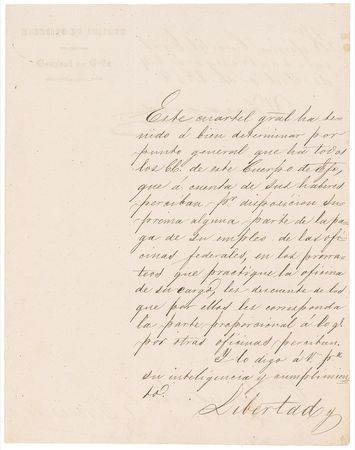 Este cuartel gral ha te-
nido á bien determinar por
punto general que ha todos
los CC. de este Cuerpo de Ejto,
que á cuenta de sus haberes
perciban pr. disposicion su-
alguna parte de la pa-
ga de su empleo de las ofi-
cinas federales, en los prorra-
teos que practique la oficina
de su cargo, les descuente de los
que por ellos les corresponda
la parte proporcional á lo q.
por otras oficinas perciban.
Y lo digo á V. pa.
su inteligencia y cumplimien-
to.
Libertad y